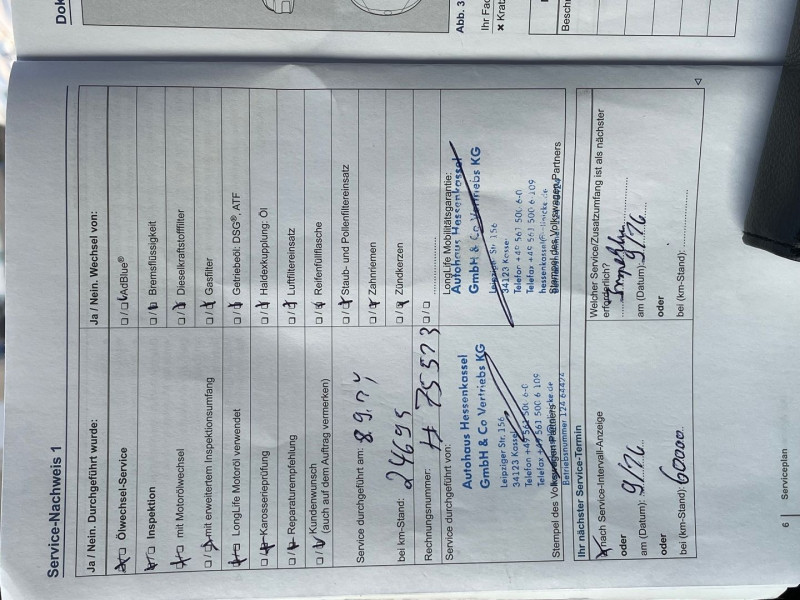 Service-Nachweis 1
Ja / Nein. Durchgeführt wurde:
Ölwechsel-Service
Inspektion
mit Motorölwechsel
mit erweitertem Inspektionsumfang
LongLife Motoröl verwendet
Karosserieprüfung
Reparaturempfehlung
Kundenwunsch
(auch auf dem Auftrag vermerken)
Service durchgeführt am:
bei km-Stand: 24695
Rechnungsnummer: # 75573
Service durchgeführt von:
Autohaus Hessenkassel
GmbH & Co Vertriebs KG
Leipziger Str. 156
34123 Kassel
Telefon +49 561 500 6-0
Telefax +49 561 500 6 109
Betriebsnummer 124 64474
Stempel des Volkswagen Partners
Ja / Nein. Wechsel von:
AdBlue®
Bremsflüssigkeit
Dieselkraftstofffilter
Gasfilter
Getriebeöl: DSG®, ATF
Haldexkupplung: Öl
Luftfiltereinsatz
Reifenfüllflasche
Staub- und Pollenfiltereinsatz
Zahnriemen
Zündkerzen
LongLife Mobilitätsgarantie:
Autohaus Hessenkassel
GmbH & Co Vertriebs KG
Leipziger Str. 156
34123 Kassel
Telefon +49 561 500 6-0
Telefax +49 561 500 6 109
Stempel des Volkswagen Partners
Ihr nächster Service-Termin
nach Service-Intervall-Anzeige
oder
am (Datum): 9/26
oder
bei (km-Stand): 60000
Welcher Service/Zusatzumfang ist als nächster
erforderlich?
am (Datum): 9/26
oder
bei (km-Stand):
6 Serviceplan
Abb. 3
Ihr Fac
Krat
Besch
Dok